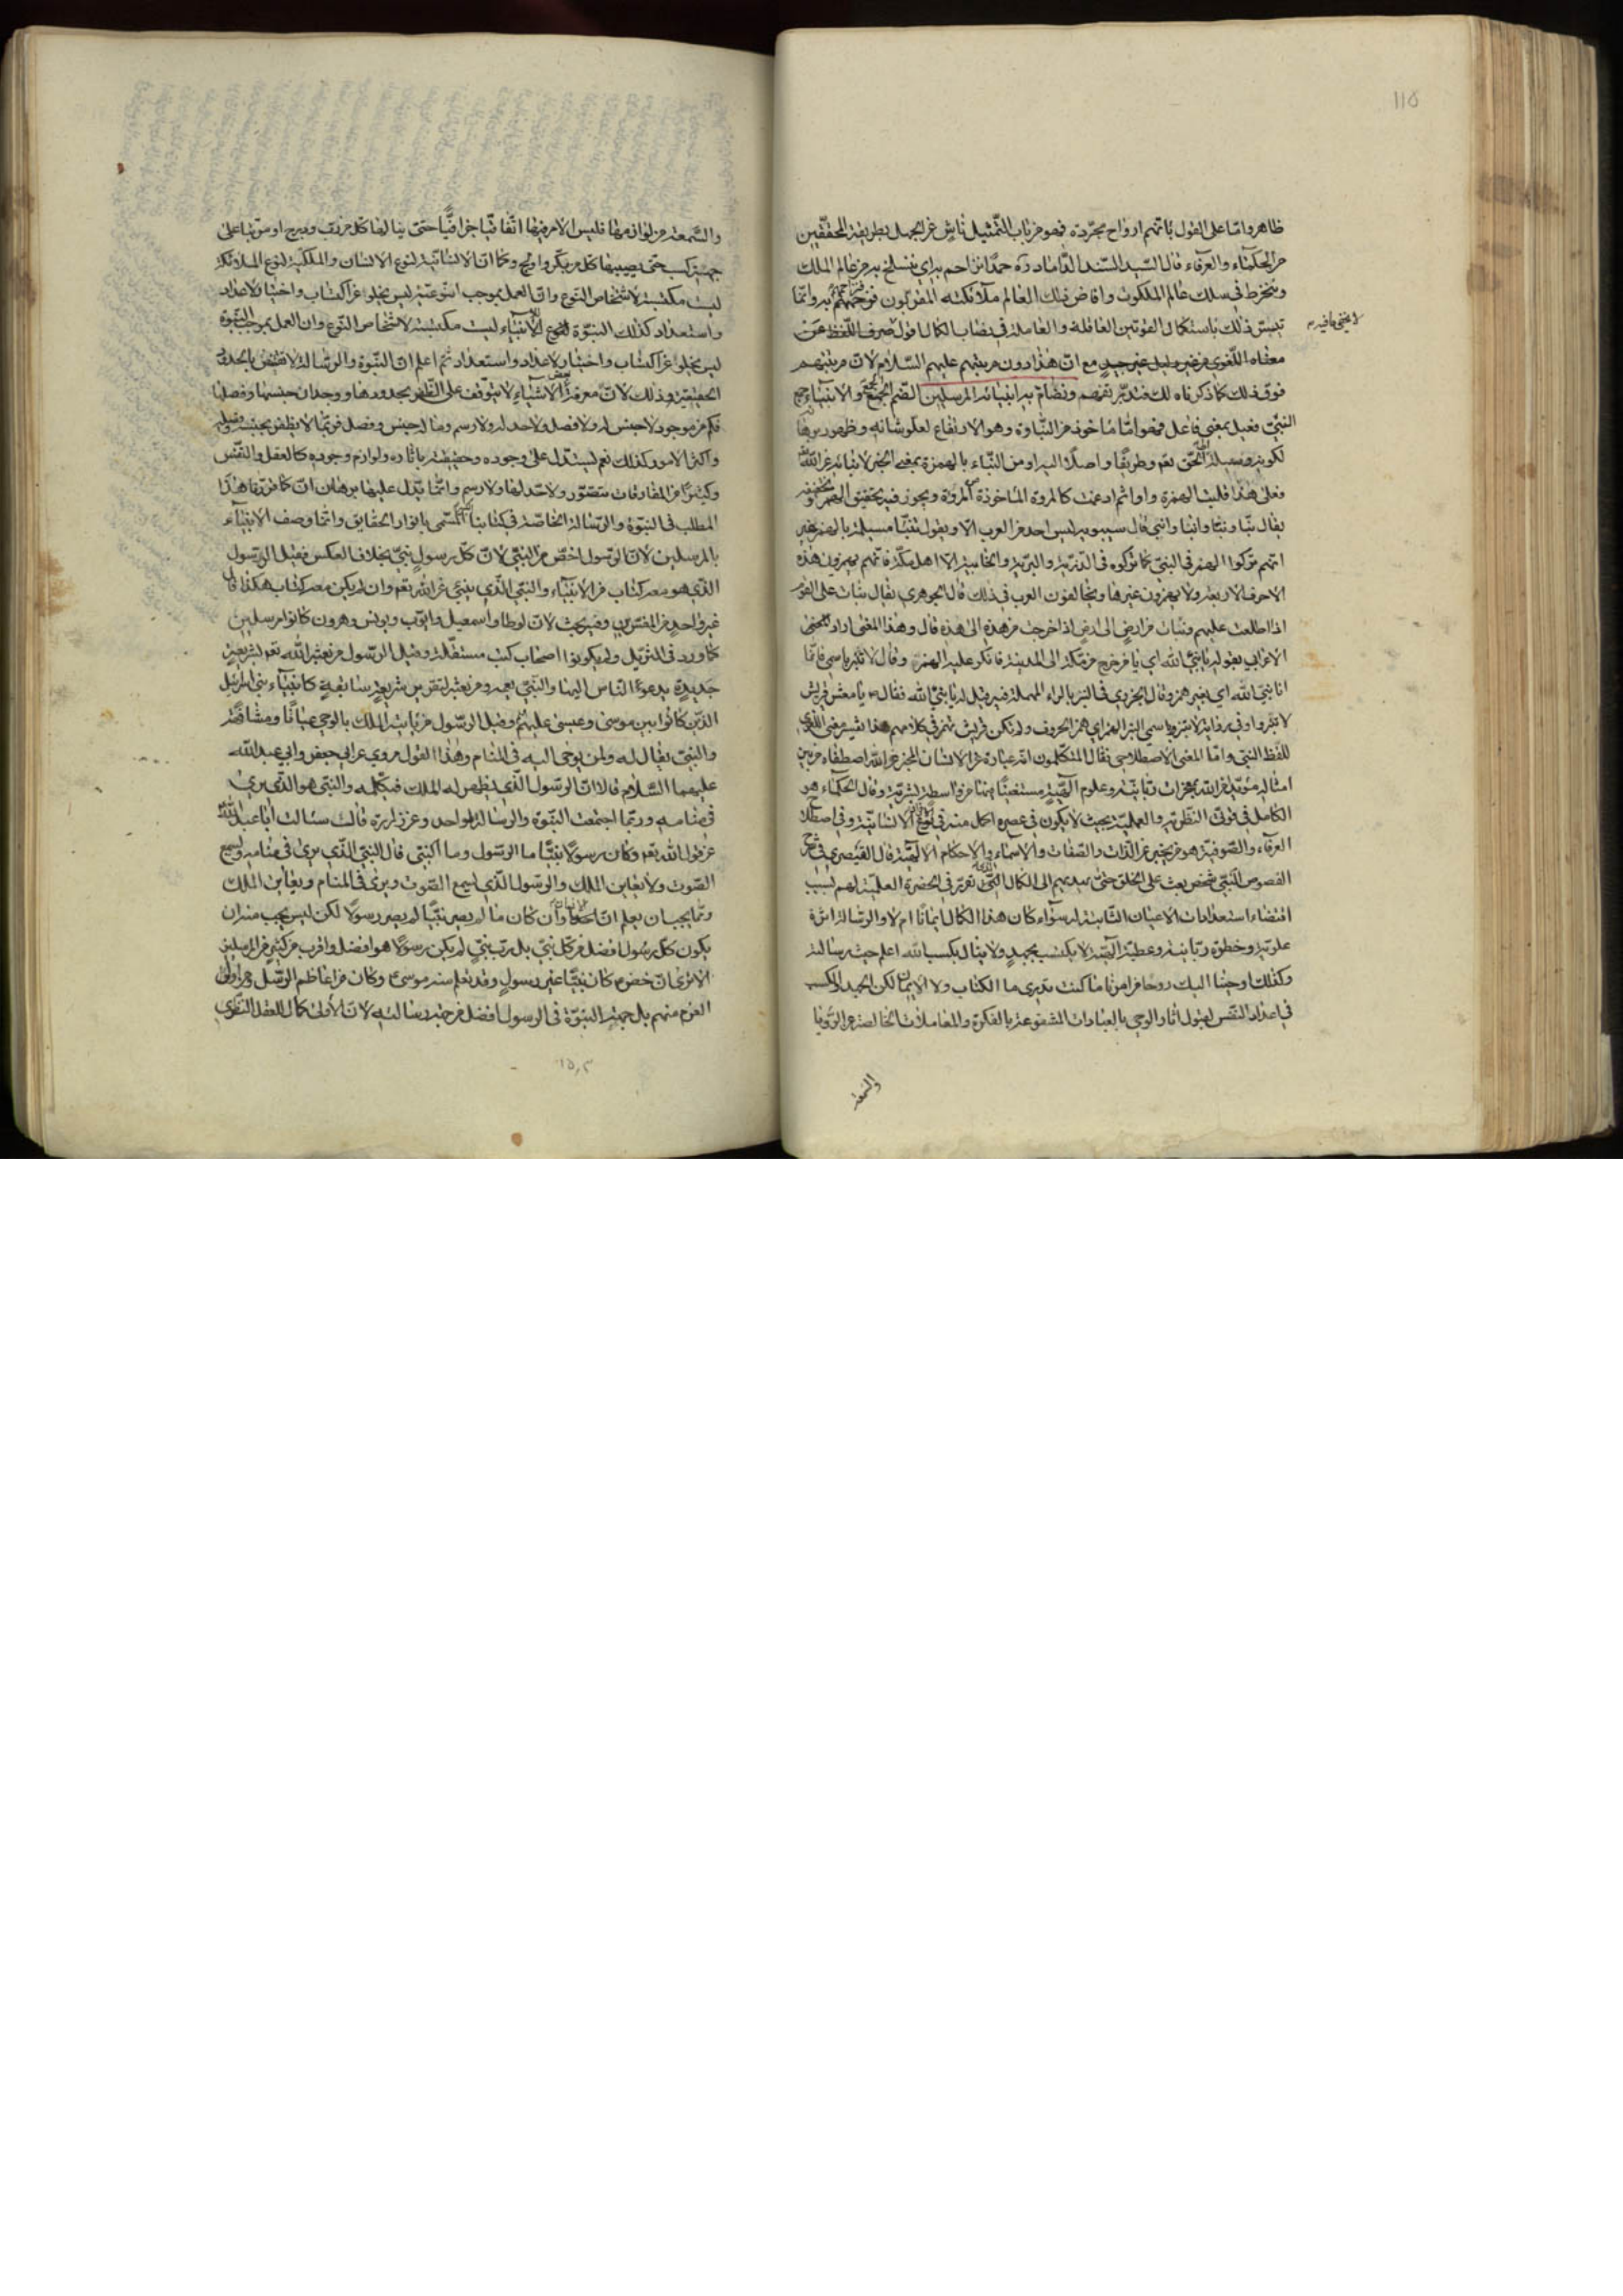 ١١٥
ظاهر واما على القول بانهم ارواح مجردة فهو من باب التمثيل ناش عن الجهل بطريقة المحققين
من الحكماء والعرفاء قال السيد السند الداماد ره حمدا من احم به اي ننسلخ به من عالم الملك
وننخرط في سلك عالم الملكوت وافاض ذلك العالم ملائكته المقربون به وانما
تيسر ذلك باستكمال القوتين العاقلة والعاملة في نصاب الكمال اقول صرف اللفظ عن
لا يخفى ما فيه
معناه اللغوي من غير دليل غير جيد مع ان هذا دون مرتبتهم عليهم السلام لان مرتبتهم
فوق ذلك كما ذكرناه لك فتدبر تفهم ونضام به انبيائه المرسلين الضم الجمع والانبياء جمع
النبي فعيل بمعنى فاعل فهو اما ماخوذ من النباوة وهو الارتفاع لعلو شانه وظهور برهانه
لكونه وسيلة الحق نعم وطريقا واصلا اليه او من النباء بالهمزة بمعنى الخبر لانبائه عن الله
فعلى هذا قلبت الهمزة واوا ثم ادغمت كالمروة الماخوذة من المروءة ويجوز فيه تحقيق الهمز وتخفيفه
يقال نبأ ونبّأ وانبأ وانبى قال سيبويه ليس احد من العرب الا ويقول تنبأ مسيلمة بالهمز غير
انهم تركوا الهمز في النبي كما تركوه في الذرية والبرية والخابية الا اهل مكة فانهم يهمزون هذه
الاحرف الاربعة ولا يهمزون غيرها ويخالفون العرب في ذلك قال الجوهري يقال نبات على القوم
اذا طلعت عليهم ونبات من ارض الى ارض اذا خرجت من هذه الى هذه قال وهذا المعنى اراد
الاعرابي بقوله يا نبئ الله اي يا من خرج من مكة الى المدينة فانكر عليه الهمزة وقال لا تنبر باسمي فانما
انا نبي الله اي بغير همز وقال الجزري في النبر بالراء المهملة فيه قيل له يا نبئ الله فقال ص يا معشر قريش
لا تنبروا وفي رواية لا تنبروا باسمي النبر الهمز اي همز الحروف ولم تكن قريش تهمز في كلامهم هذا تفسير معنى اللغوي
للفظ النبي واما المعنى الاصطلاحي فقال المتكلمون انه عبارة عن الانسان المخبر عن الله اصطفاه من بين
امثاله مؤيد من الله بمعجزات ربانية وعلوم الهية مستغنيا فيها عن واسطة بشرية وقال الحكماء هو
الكامل في قوتي النظرية والعملية بحيث لا يكون في عصره اكمل منه في نوع الانسانية وفي اصطلاح
العرفاء والصوفية هو من يخبر عن الذات والصفات والاسماء والاحكام الالهية قال القيصري في شرح
الفصوص النبي شخص بعث على الخلق حتى يهديهم الى الكمال الذي تقرر في الحضرة العلمية لهم بسبب
اقتضاء استعدادات الاعيان الثابتة له سواء كان هذا الكمال ايمانا ام لا والرسالة اثرة
علوية وحظوة ربانية وعطية الهية لا يكتسب بجهد ولا ينال بكسب الله اعلم حيث رسالته
وكذلك اوحينا اليك روحا من امرنا ما كنت تدري ما الكتاب ولا الايمان لكن الجهد والكسب
في اعداد النفس لقبول اثار الوحي بالعبادات المشفوعة بالفكرة والمعاملات الخالصة عن الرؤيا
والسمعة
والسمعة من لوازمها فليس الامر فيها اتفاقيا جزافيا حتى ينالها كل من دب ودرج او مرتبا على
جهد كسب حتى يصيبها كل من بكر وادلج وكما ان الانسانية لنوع الانسان والملكية لنوع الملائكة
ليست مكتسبة لاشخاص النوع وان العمل بموجب النوعية ليس يخلو عن اكتساب واختيار لاعداد
واستعداد كذلك النبوة لنوع الانبياء ليست مكتسبة لاشخاص النوع وان العمل بموجب النبوة
ليس يخلو عن اكتساب واختيار لاعداد واستعداد ثم اعلم ان النبوة والرسالة لا تقتنص بالحدود
الحقيقية وذلك لان معرفة بعض الاشياء لا يتوقف على الظفر بحدودها ووجدان جنسها وفصلها
فكم من موجود لا جنس له ولا فصل ولا حد له ولا رسم وما له جنس وفصل فربما لا يظفر بجنسه وفصله
واكثر الامور كذلك نعم يستدل على وجوده وحقيقته باثاره ولوازم وجوده كالعقل والنفس
وكثير من المفارقات متصور ولا حد لها ولا رسم وانما يدل عليها برهان ان كما قررنا هذا
المطلب في النبوة والرسالة الخاصة في كتابنا المسمى بانوار الحقايق وانما وصف الانبياء
بالمرسلين لان الرسول اخص من النبي لان كل رسول نبي بخلاف العكس فقيل الرسول
الذي هو معه كتاب من الانبياء والنبي الذي ينبئ عن الله نعم وان لم يكن معه كتاب هكذا قال
غير واحد من المفسرين وفيه بحث لان لوطا واسمعيل وايوب ويونس وهرون كانوا مرسلين
كما ورد في التنزيل ولم يكونوا اصحاب كتب مستقلة وقيل الرسول من بعثه الله نعم بشريعة
جديدة يدعو الناس اليها والنبي يعمه ومن بعثه لتقرير شريعة سابقة كانبياء بني اسرائيل
الذين كانوا بين موسى وعيسى عليهم وقيل الرسول من ياتيه الملك بالوحي عيانا ومشافهة
والنبي يقال له ولمن يوحى اليه في المنام وهذا القول مروي عن ابي جعفر وابي عبد الله
عليهما السلام قالا ان الرسول الذي يظهر له الملك فيكلمه والنبي هو الذي يرى
في منامه وربما اجتمعت النبوة والرسالة لواحد وعن زرارة قال سئالت ابا عبد الله
عن قول الله نعم وكان رسولا نبيا ما الرسول وما النبي قال النبي الذي يرى في منامه ويسمع
الصوت ولا يعاين الملك والرسول الذي يسمع الصوت ويرى في المنام ويعاين الملك
ومما يجب ان يعلم ان وان كان ما لم يصر نبيا لم يصر رسولا لكن ليس يجب منه ان
يكون كل رسول افضل من كل نبي بل رب نبي لم يكن رسولا هو افضل واقرب من كثير من المرسلين
الا ترى ان خضر كان نبيا غير رسول وقد تعلم منه موسى وكان من اعاظم الرسل ومن اولي
العزم منهم بل جهة النبوة في الرسول افضل من جهة رسالته لان الاولى كمال للعقل النظري